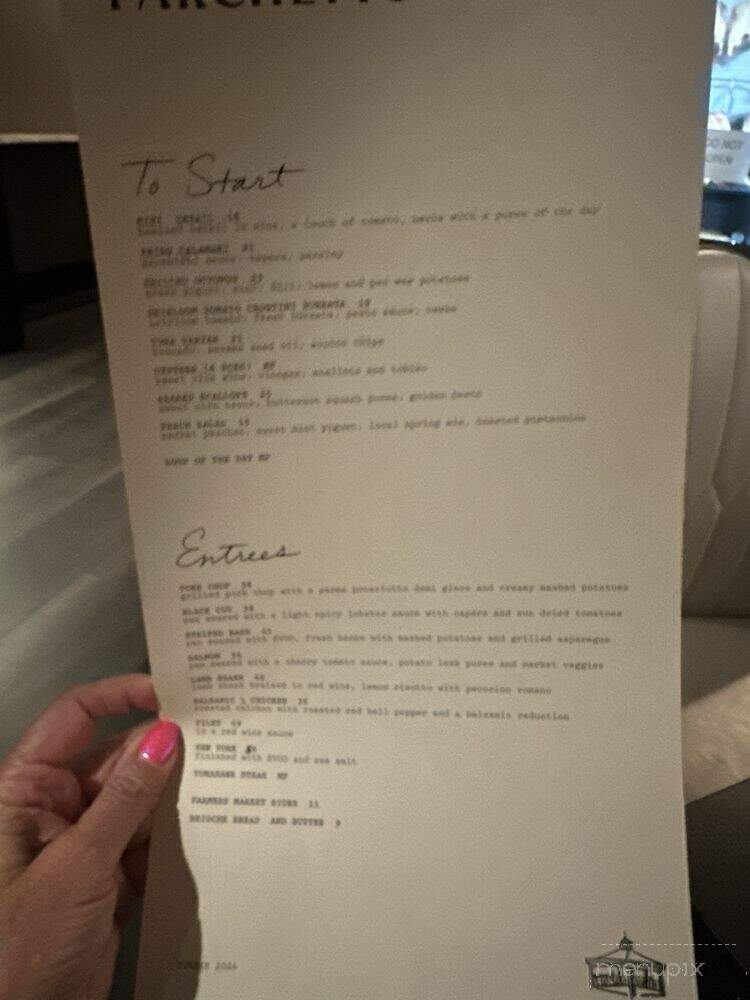 To Start
wine, a touch of tomato, herbs with a puree of the day
FRIED CALAMARI 21
capers, parsley
GRILLED OCTOPUS 23
lemon and pee wee potatoes
HEIRLOOM TOMATO CROSTINI BURRATA 19
heirloom tomato, fresh burrata, pesto sauce, herbs
TUNA TARTAR 21
avocado, sesame seed oil, wonton chips
vinegar, shallots and tobiko
SEARED SCALLOPS
sweet corn sauce, butternut squash puree, golden
PEACH SALAD 15
market peaches, sweet mint yogurt, local spring mix, toasted pistachios
SOUP OF THE DAY MP
Entrees
PORK CHOP 38
grilled pork chop with a parma prosciutto demi glace and creamy mashed potatoes
BLACK COD 38
pan seared with a light spicy lobster sauce with capers and sun dried tomatoes
STRIPED BASS 41
pan seared with EVOO, fresh herbs with mashed potatoes and grilled asparagus
SALMON 35
pan seared with a cherry tomato sauce, potato leek puree and market veggies
LAMB SHANK 42
lamb shank braised in red wine, lemon risotto with pecorino romano
BALSAMIC ½ CHICKEN 36
roasted chicken with roasted red bell pepper and a balsamic reduction
FILET 49
in a red wine sauce
NEW YORK
finished with EVOO and sea salt
TOMAHAWK STEAK MP
FARMERS MARKET SIDES 11
BRIOCHE BREAD AND BUTTER 9
DO NOT
OPEN
menupix